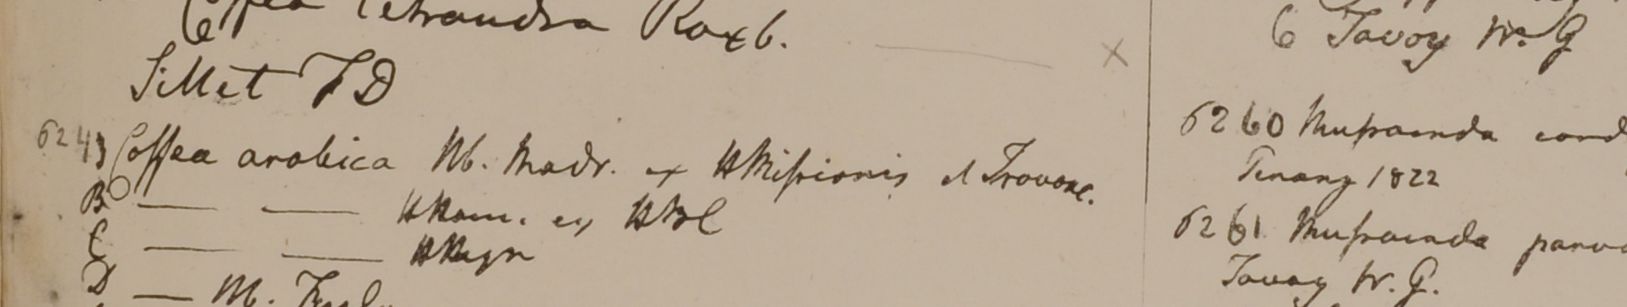 Coffea tetrandra Roxb. ——— ×
Sillet F D
6243 Coffea arabica Hb. Madr. ex HMissionis et Travanc.
B — — HHam. ex HBC
C — — HHeyn
D — Hb.
C Tavoy W. G
6260 Mussaenda cord
Penang 1822
6261 Mussaenda parv
Tavoy W. G.